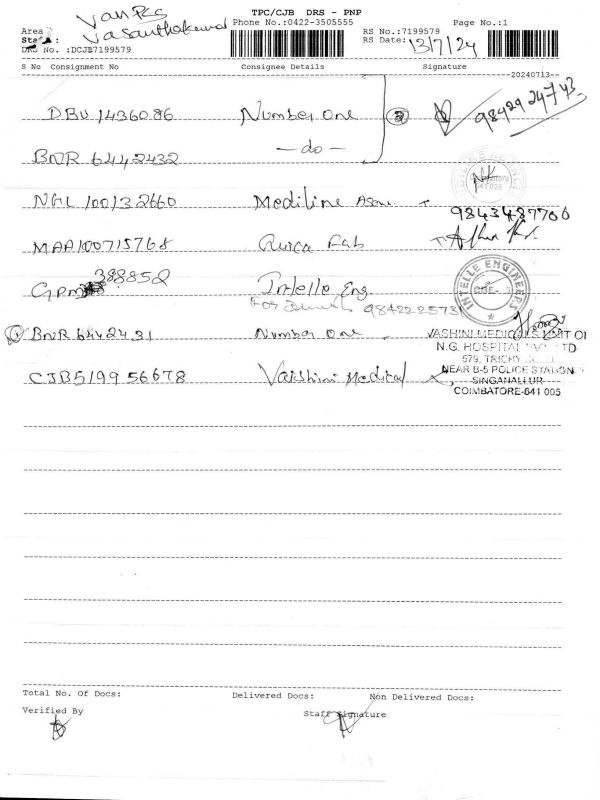 Van Pcs
Vasanthakumar
TPC/CJB DRS - PNP
Area
Phone No.:0422-3505555
Page No.:1
RS No.:7199579
RS Date:
13/7/24
DRS No. :DCJB7199579
S No Consignment No Consignee Details Signature
20240713--
DBU 1436086 Number one 98429 24743
BNR 6442432 -do-
NGL 100132660 Mediline
9843487706
MAA100715768 Quica Fab
GPM 388852 Intello Eng
INTELLE ENGINEERS
98422
BNR 6442431 Number one
N.G. HOSPITAL
579, TRICHY
CJB5199 56678 Vaishini Medical
NEAR B-5 POLICE STATION
SINGANALLUR
COIMBATORE-641 005
Total No. Of Docs: Delivered Docs: Non Delivered Docs:
Verified By Staff Signature